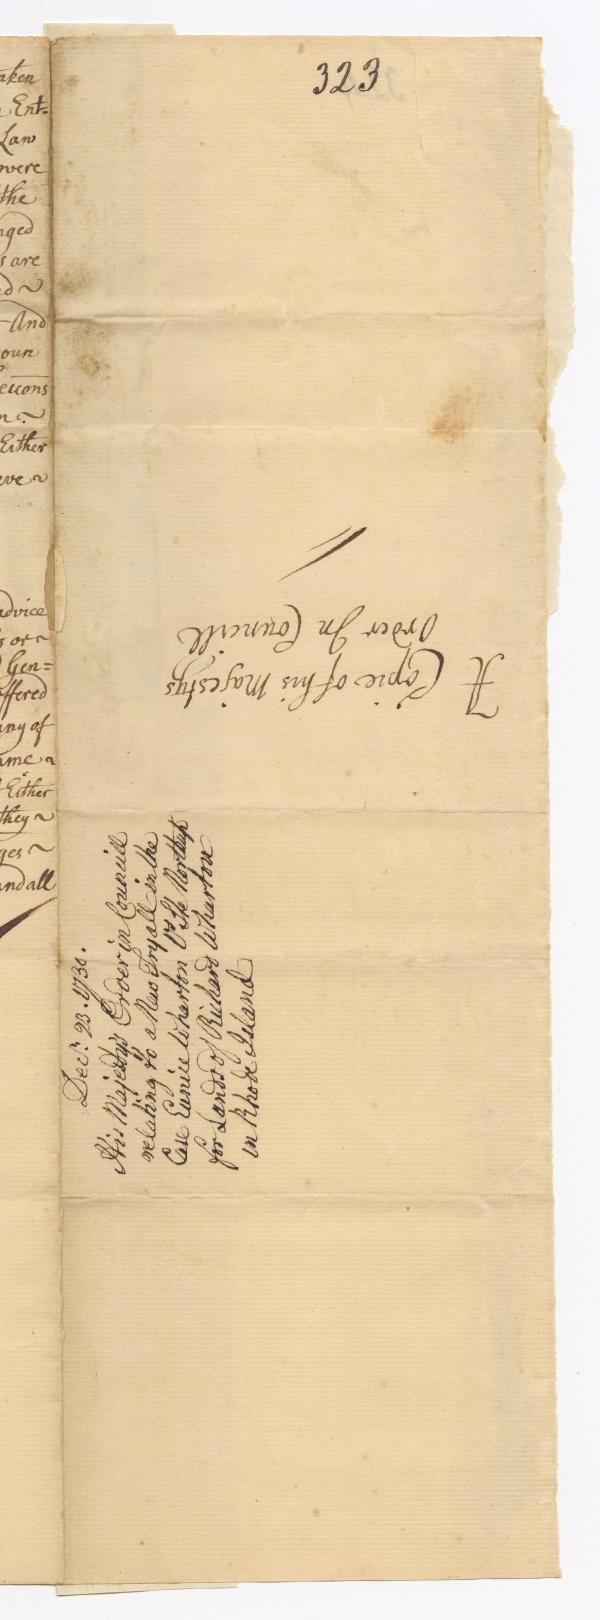 323
aken
Ent=
Law
were
the
nged
s are
nd ~
And
oun
ections
n ~
Either
eve ~
advice
s or ~
Gen=
offered
any of
ame ~
Either
they ~
ges ~
and all
A Copie of his Majestys
Order In Councill
Decr. 23. 1730.
His Majestys Order in Councill
relating to a New Tryall in the
Case Eunice Wharton Vs Northup
for Lands of Richard Wharton
in Rhode Island